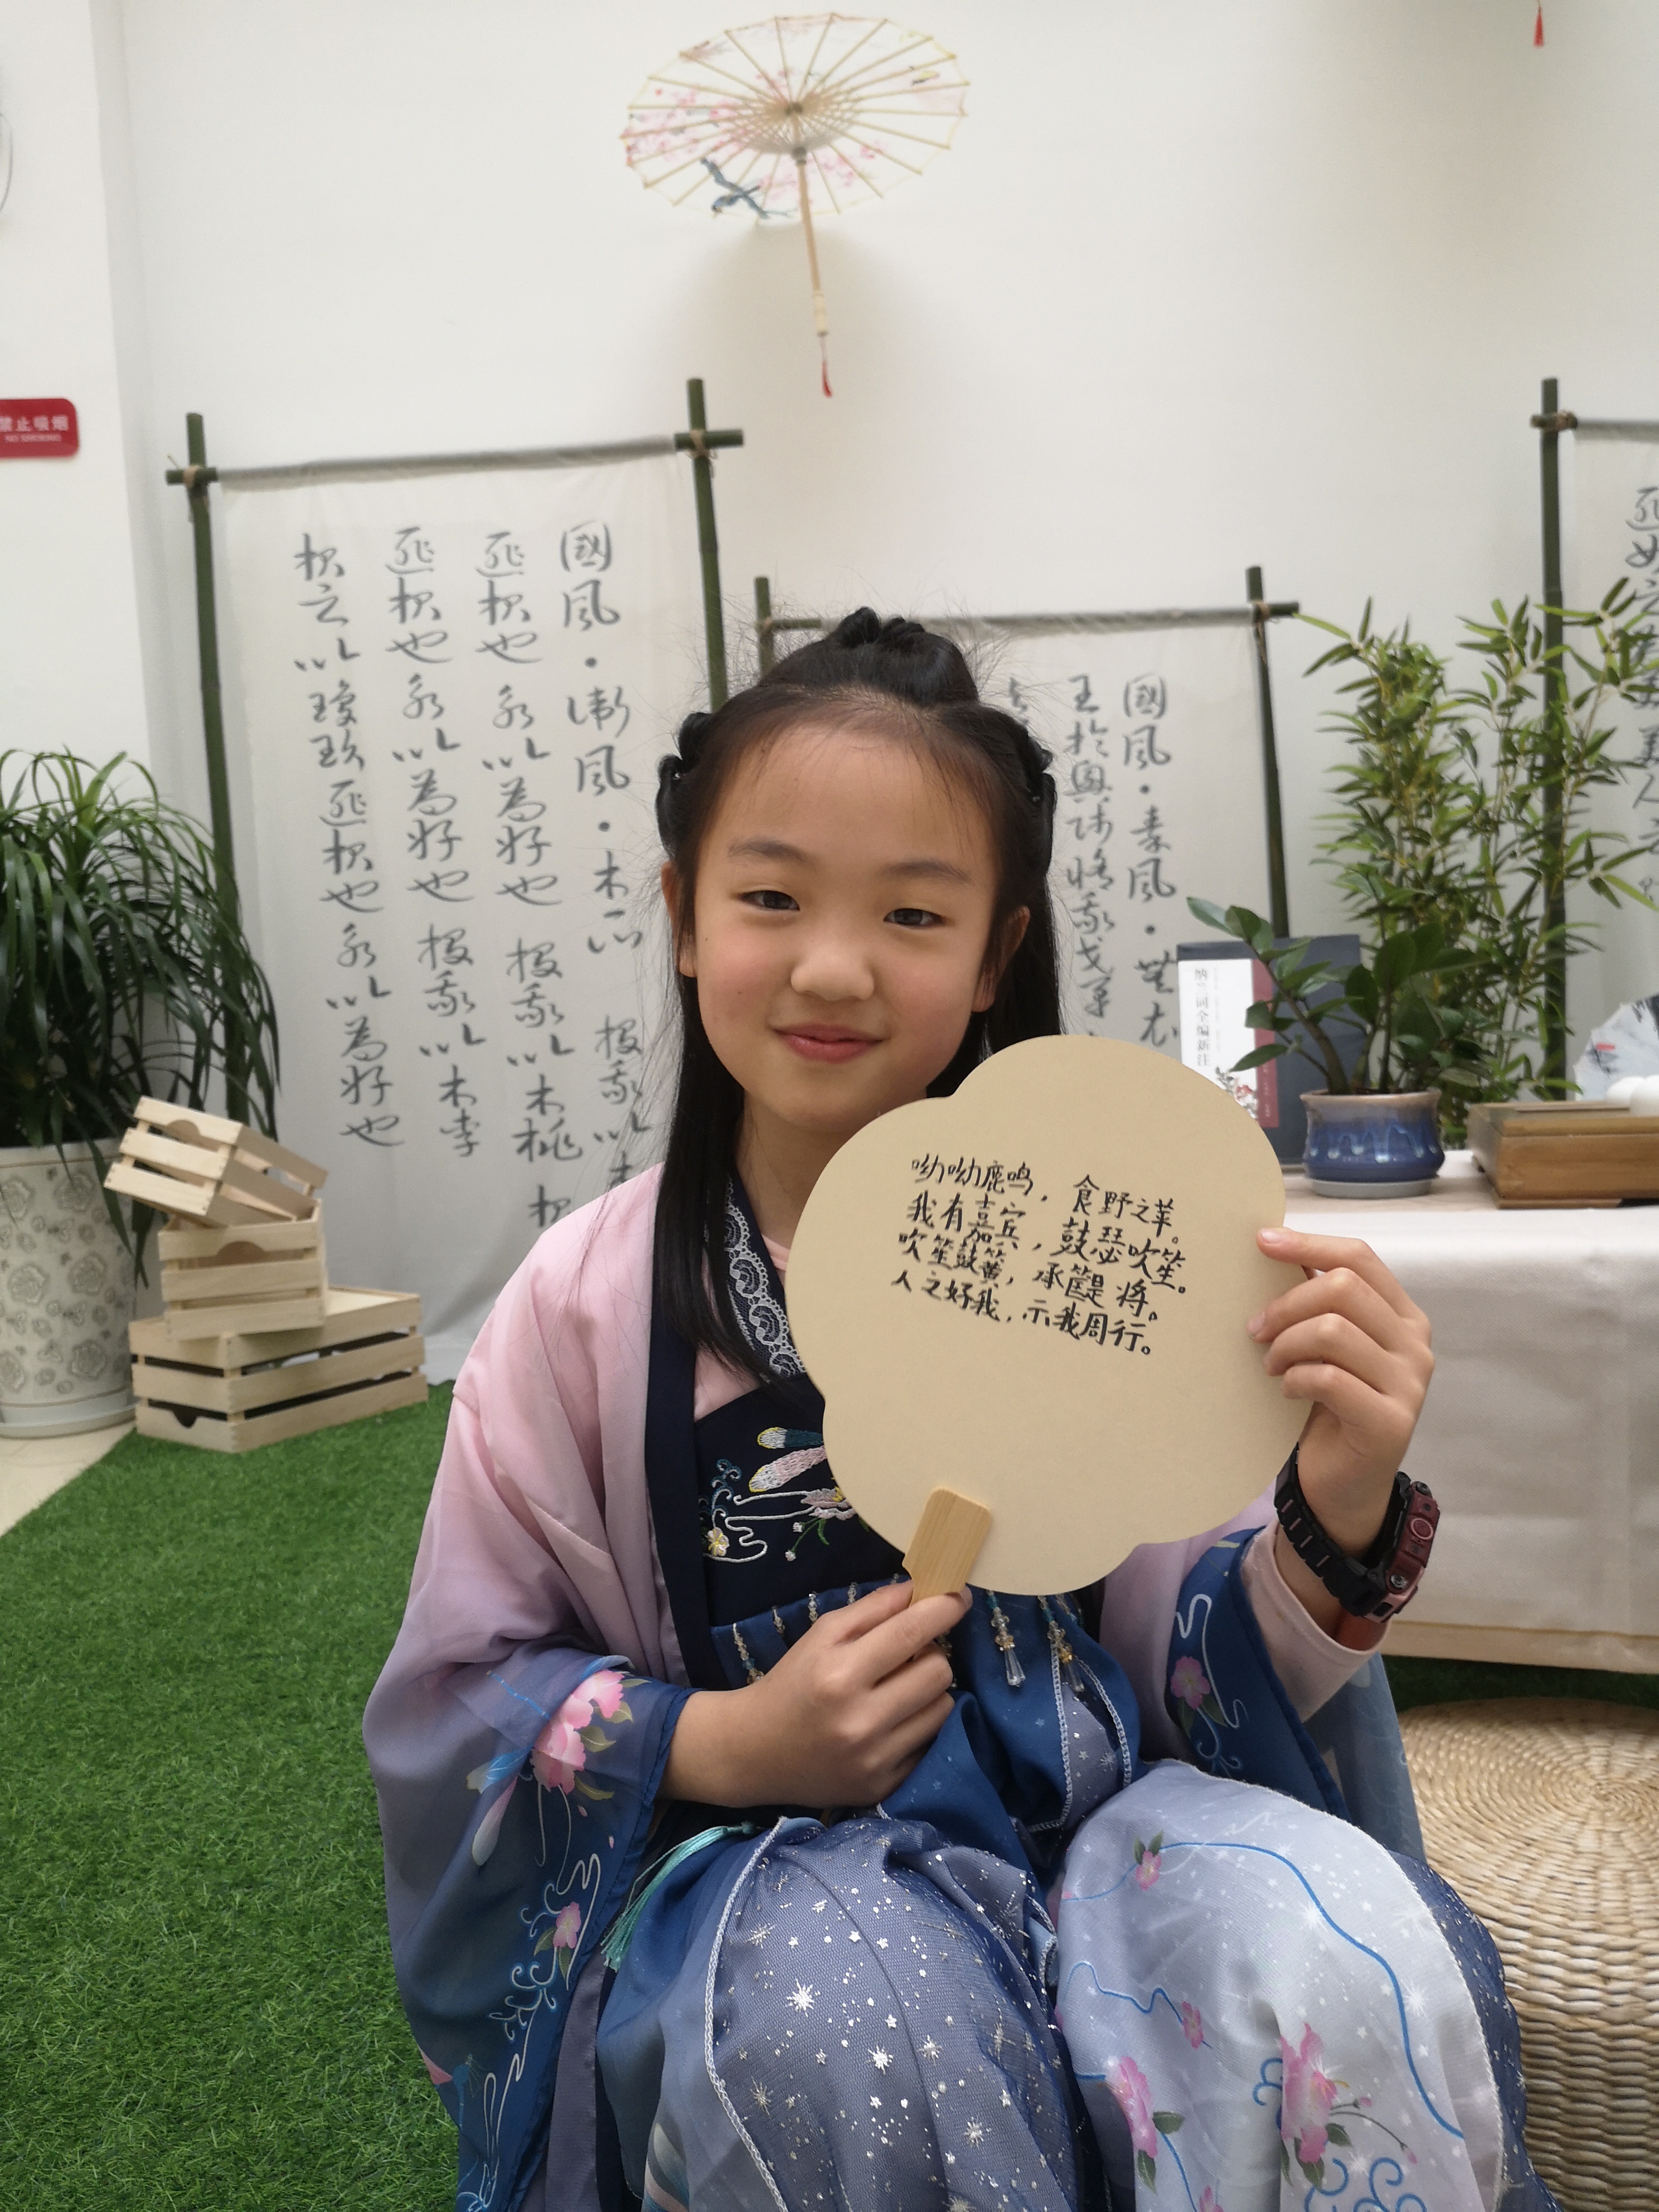 禁止吸烟
NO SMOKING
國風·衛風·木瓜 投我以木
匪報也 永以為好也 投我以木桃 報
匪報也 永以為好也 投我以木李
報之以瓊玖 匪報也 永以為好也
國風·秦風·無衣
王於興師 脩我戈矛
纳兰词全编新注
呦呦鹿鸣，食野之苹。
我有嘉宾，鼓瑟吹笙。
吹笙鼓簧，承筐是将。
人之好我，示我周行。